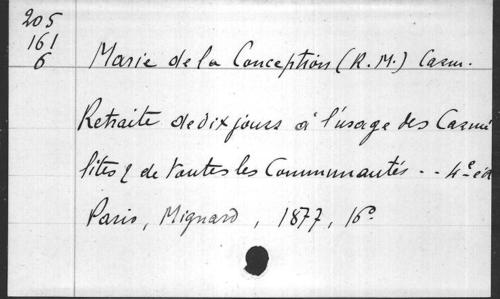 205
161
6
Marie de la Conception (R. M.) Carm.
Retraite de dix jours à l'usage des Carmé
lites & de toutes les Communautés .. 4e éd
Paris, Mignard, 1877, 16o.